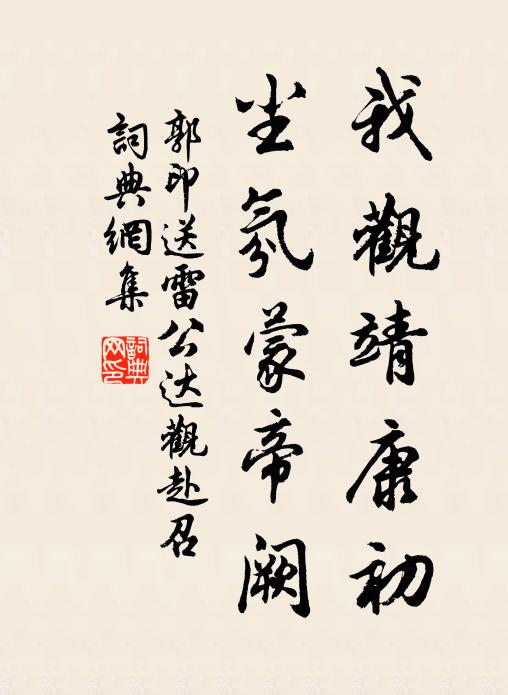 我觀靖康初
尘氛蒙帝阙
郭印送雷公达觀赴召
詞典網集
詞典网印